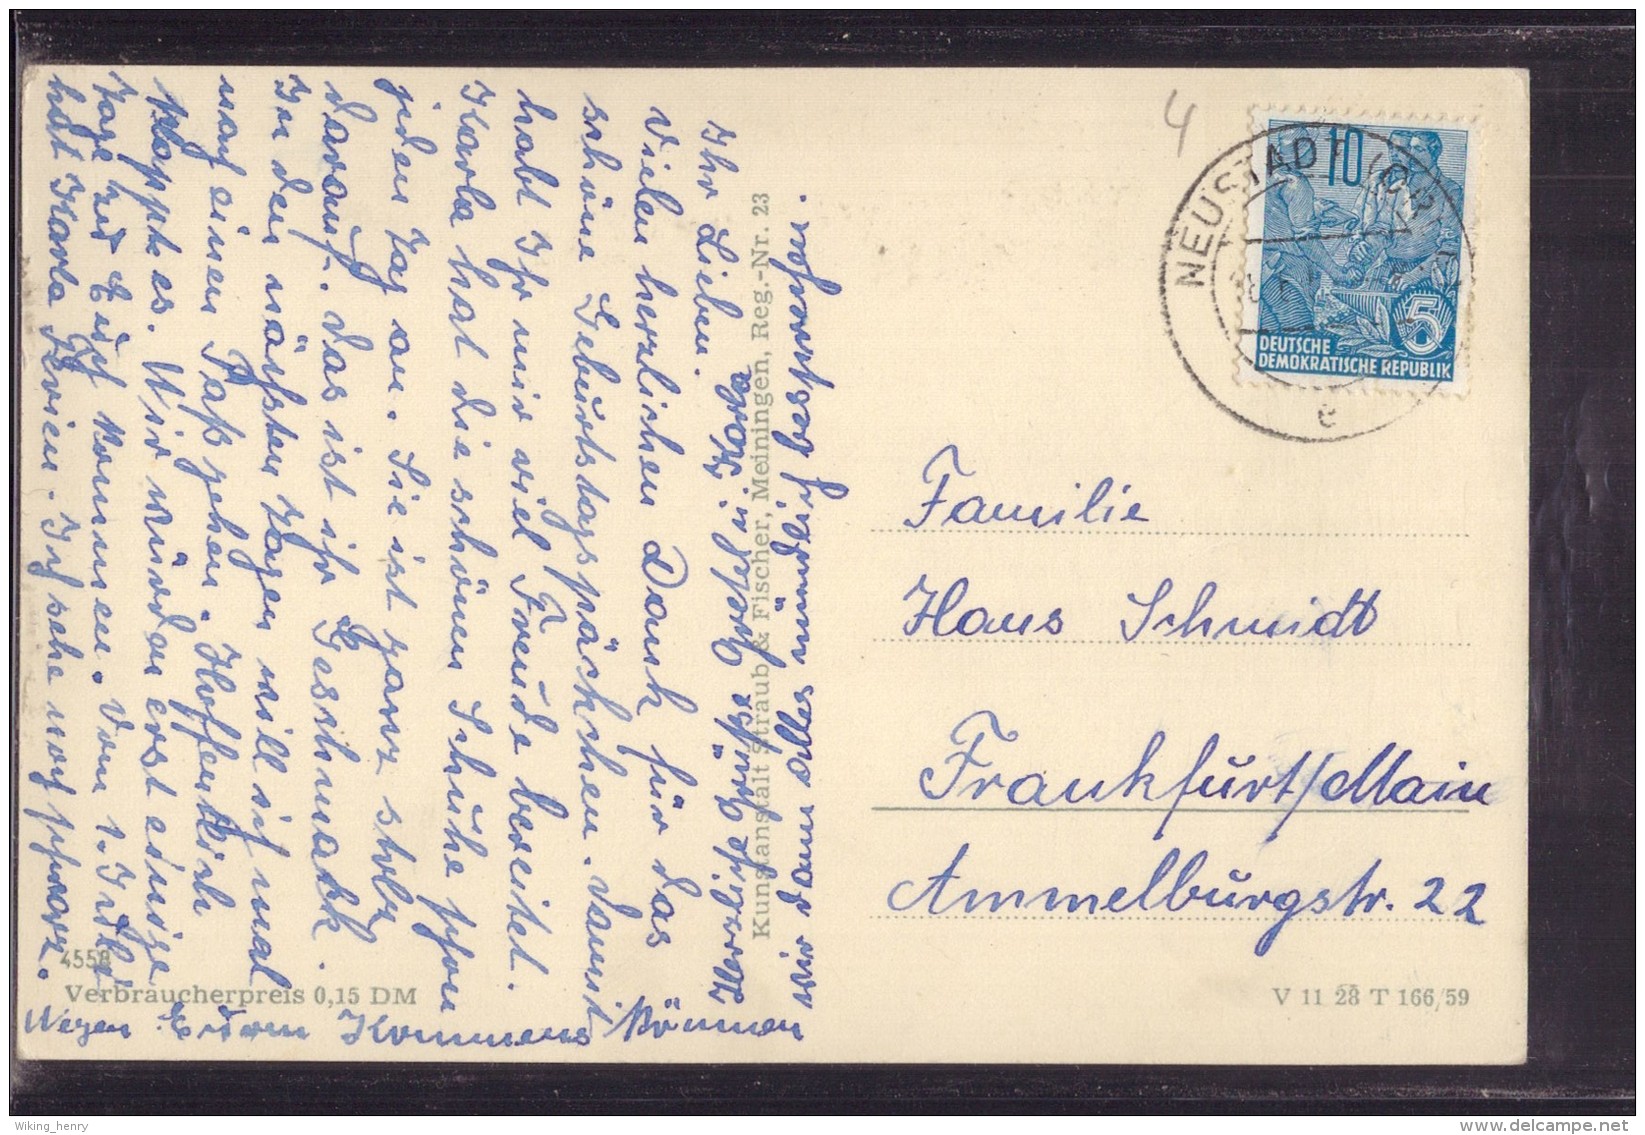 4
NEUSTADT (ORLA)
10
5
DEUTSCHE
DEMOKRATISCHE REPUBLIK
e
Familie
Hans Schmidt
Frankfurt/Main
Ammelburgstr. 22
V 11 28 T 166/59
Kunstanstalt Straub & Fischer, Meiningen, Reg.-Nr. 23
4558
Verbraucherpreis 0,15 DM
Ihr Lieben.
Vielen herzlichen Dank für das
schöne Geburtstagspäckchen. Damit
habt Ihr mir viel Freude bereitet.
Karla hat die schönen Schuhe schon
jeden Tag an. Sie ist ganz stolz
darauf. Das ist ihr Geschmack.
In den nächsten Tagen will ich mal
nach einen Paß gehen. Hoffentlich
klappt es. Wir würden erst einige
Tage zu Euch kommen. Vom 1. Juli
hat Karla Ferien. Ich sehe noch schwarz.
Wegen Eurem Kommens können
wir dann alles mündlich besprechen.
Herzliche Grüße
Wiking_henry
www.delcampe.net